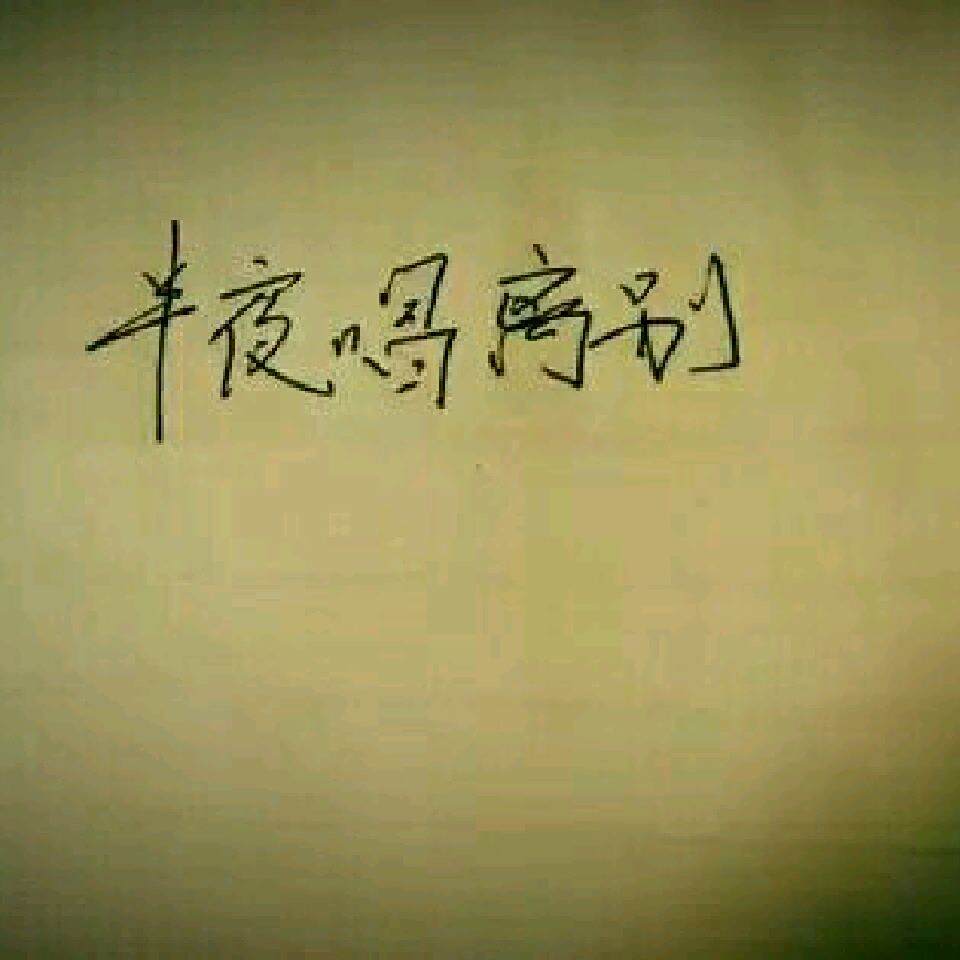 半夜喝离别